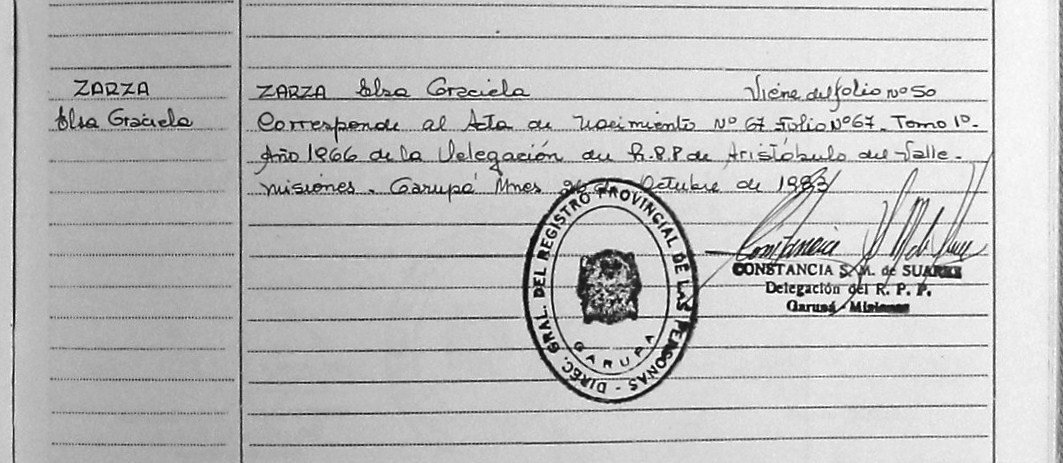 ZARZA
Elsa Graciela
ZARZA Elsa Graciela Viene del folio nº 50
Corresponde al Acta de Nacimiento Nº 67 folio Nº 67. Tomo 1º.
Año 1966 de la Delegación del R.P.P de Aristóbulo del Valle.
Misiones. Garupá Mnes 26 de Octubre de 1983
DIREC. GRAL. DEL REGISTRO PROVINCIAL DE LAS PERSONAS -
GARUPA
CONSTANCIA S. M. de SUAREZ
Delegación del R. P. P.
Garupá - Misiones